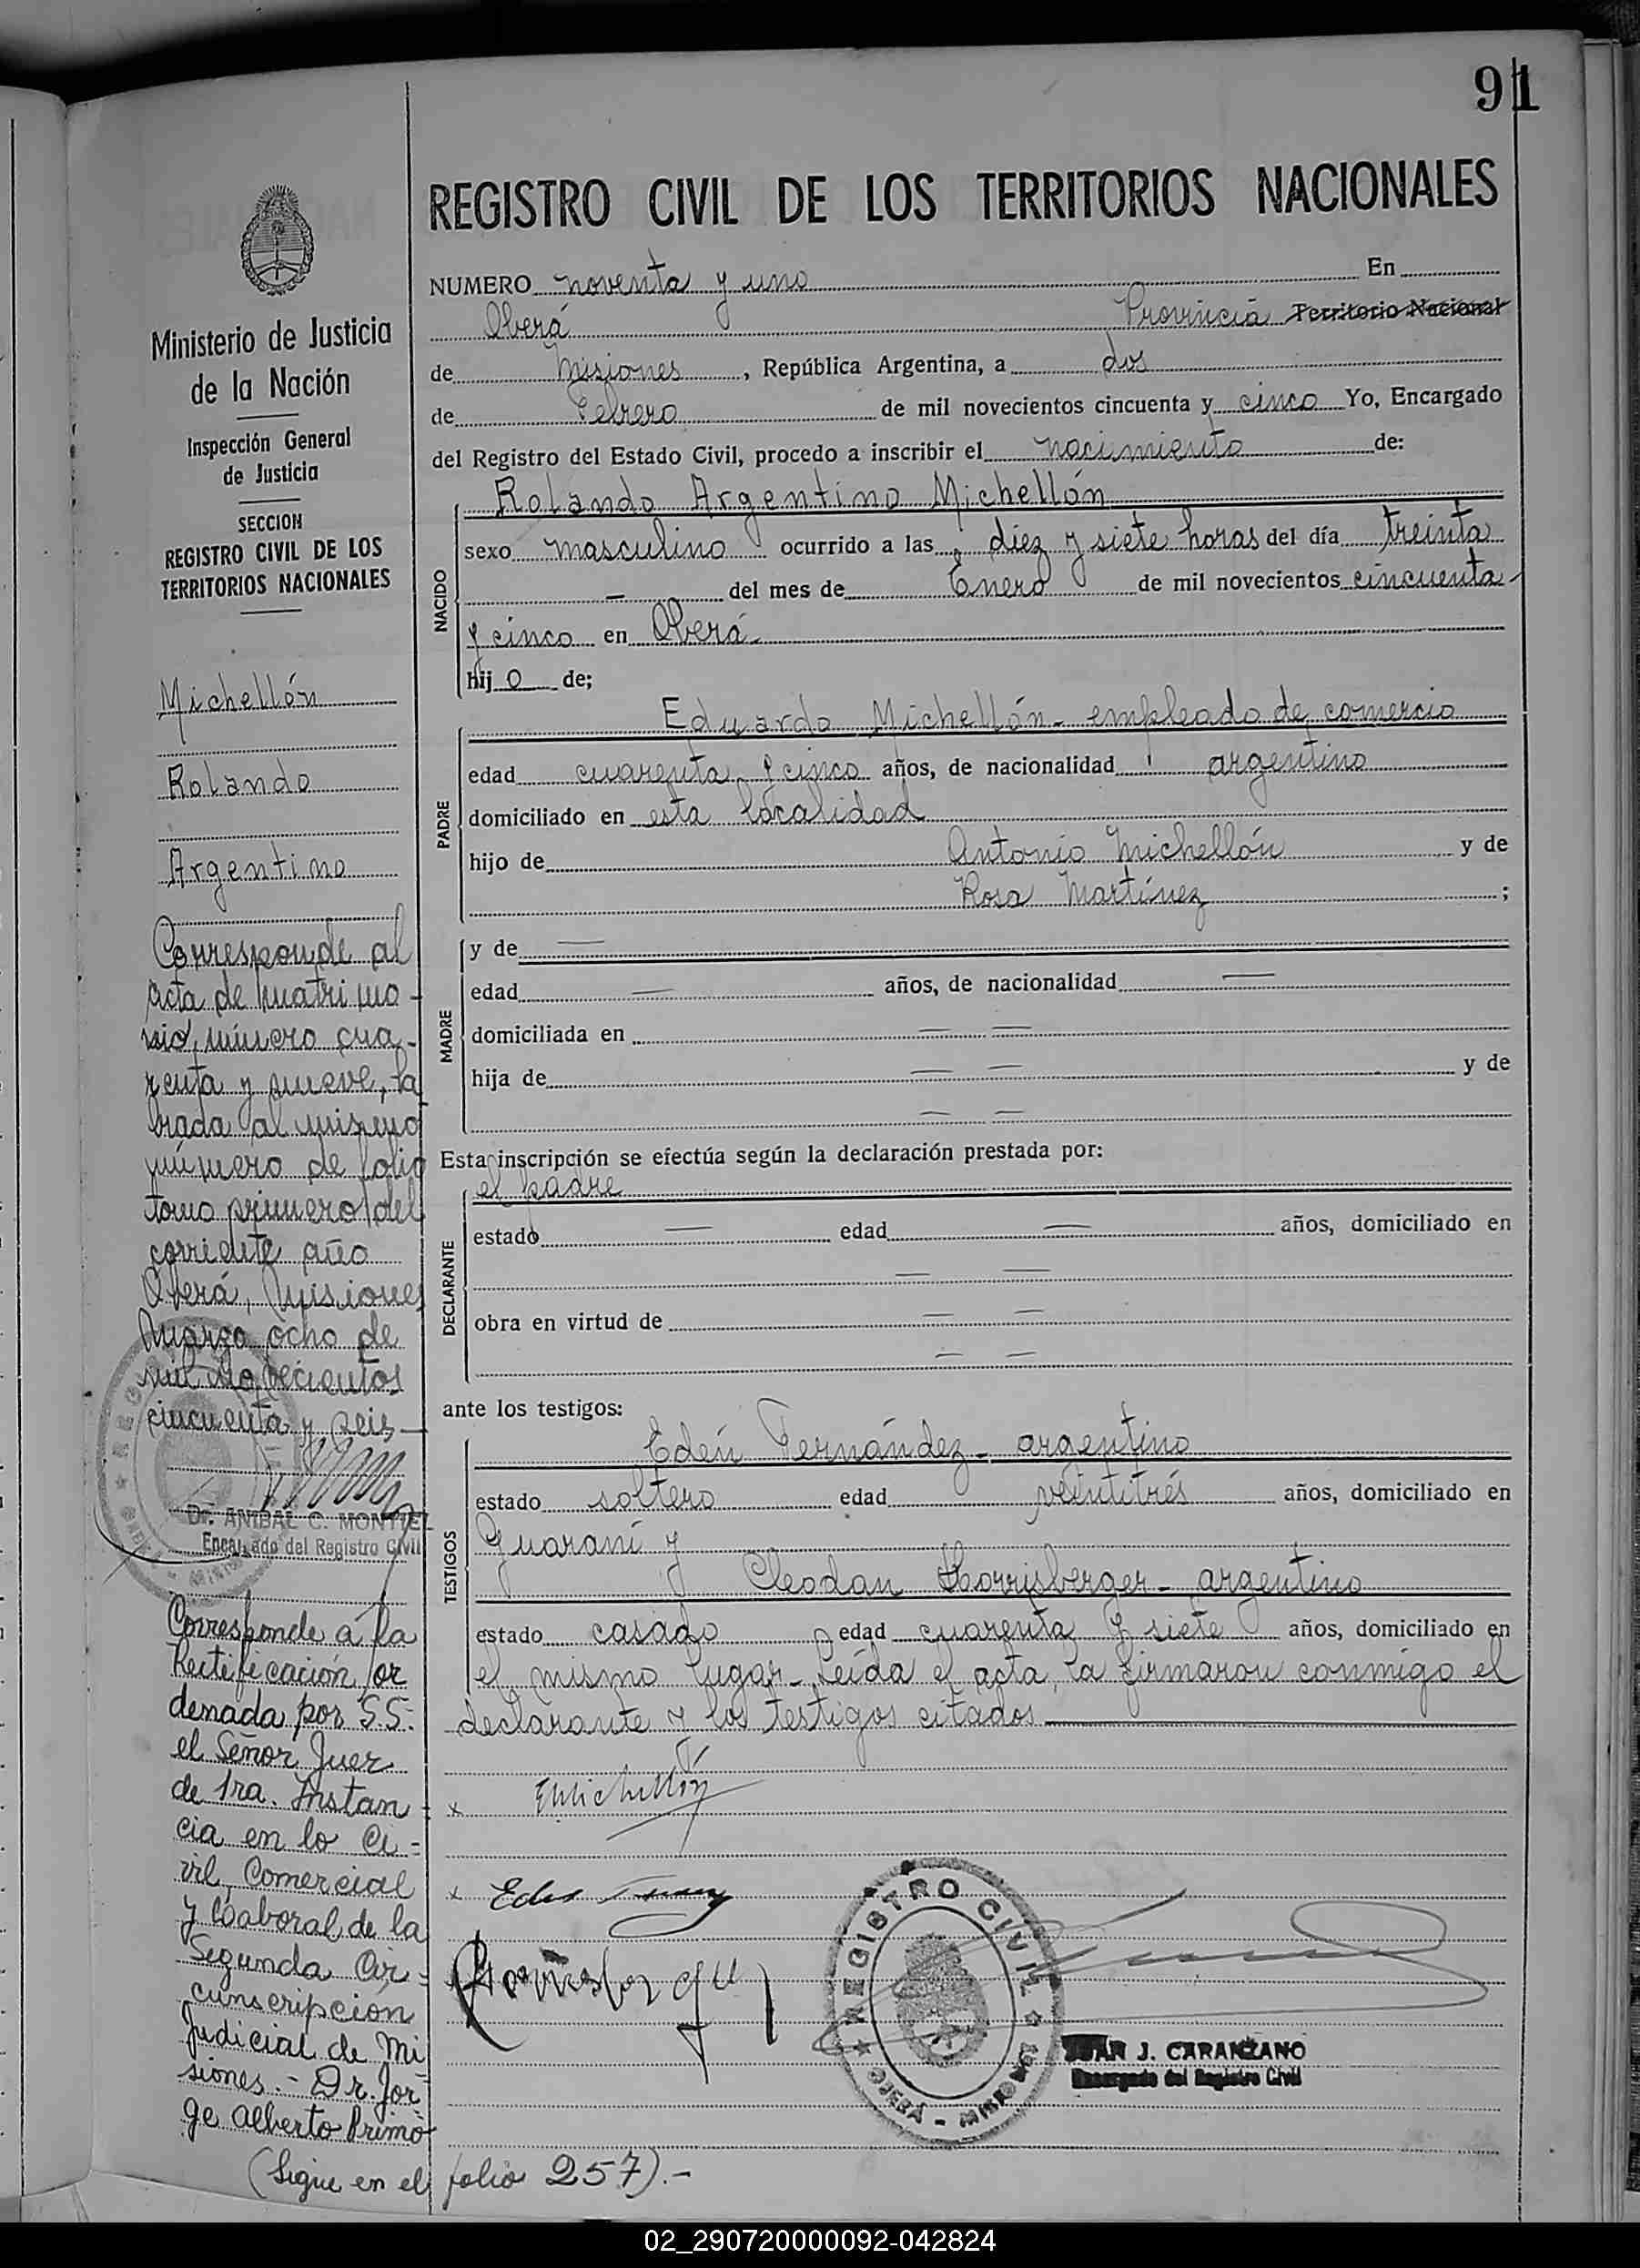 91
REGISTRO CIVIL DE LOS TERRITORIOS NACIONALES
NUMERO noventa y uno En
Oberá Provincia Territorio Nacional
de Misiones, República Argentina, a dos
de Febrero de mil novecientos cincuenta y cinco Yo, Encargado
del Registro del Estado Civil, procedo a inscribir el nacimiento de:
NACIDO
Rolando Argentino Michellón
sexo masculino ocurrido a las diez y siete horas del día treinta
— del mes de Enero de mil novecientos cincuenta
y cinco en Oberá
hijo de;
PADRE
Eduardo Michellón - empleado de comercio
edad cuarenta y cinco años, de nacionalidad argentino
domiciliado en esta localidad
hijo de Antonio Michellón y de
Rosa Martínez ;
MADRE
y de —
edad — años, de nacionalidad —
domiciliada en — —
hija de — — y de
— —
Esta inscripción se efectúa según la declaración prestada por:
DECLARANTE
el padre
estado — edad — años, domiciliado en
— —
obra en virtud de — —
— —
ante los testigos:
TESTIGOS
Edén Fernández - argentino
estado soltero edad veintitrés años, domiciliado en
Guaraní y
Cleodan - argentino
estado casado edad cuarenta y siete años, domiciliado en
el mismo lugar - Leída el acta, la firmaron conmigo el
declarante y los testigos citados
x EMichellón
x
REGISTRO CIVIL
OBERÁ - MISIONES
J. CARANZANO
Encargado del Registro Civil
Ministerio de Justicia
de la Nación
Inspección General
de Justicia
SECCION
REGISTRO CIVIL DE LOS
TERRITORIOS NACIONALES
Michellón
Rolando
Argentino
Corresponde al
acta de matrimo-
nio, número cua-
renta y nueve, la
brada al mismo
número de folio
tomo primero del
corriente año
Oberá, Misiones
Marzo ocho de
mil novecientos
cincuenta y seis
Dr. ANIBAL C. MONTIEL
Encargado del Registro Civil
Corresponde a la
Rectificación or
denada por S.S.
el Señor Juez
de 1ra. Instan=
cia en lo Ci=
vil, Comercial
y Laboral de la
Segunda Cir=
cunscripción
Judicial de Mi
siones.- Dr. Jor
ge Alberto Primo
(Sigue en el folio 257).-
02_290720000092-042824